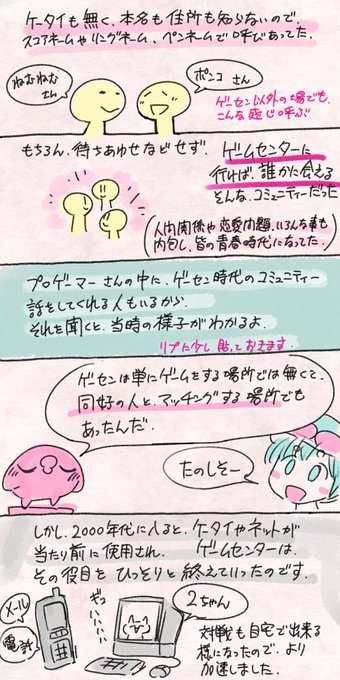 ケータイも無く、本名も住所も知らないので、
スコアネームやリングネーム、ペンネームで呼びあってた。
ねむねむ
さん
ポンコ さん
ゲーセン以外の場でも、
こんな感じ呼ぶ
もちろん、待ちあわせなどせず、ゲームセンターに
行けば、誰かに会える
そんな、コミュニティーだった
人間関係や恋愛問題、いろんな事も
内包し、皆の青春時代になってた。
プロゲーマーさんの中に、ゲーセン時代のコミュニティー
話をしてくれる人もいるから
それを聞くと、当時の様子がわかるよ
リプに少し貼っておきます
ゲーセンは単にゲームをする場所では無くて、
同好の人と、マッチングする場所でも
あったんだ。
たのしそー
しかし、2000年代に入ると、ケータイやネットが
当たり前に使用され、 ゲームセンターは、
その役目をひっそりと終えていったのです。
メール
電話
2ちゃん
対戦も自宅で出来る
様になったので、より
加速しました。